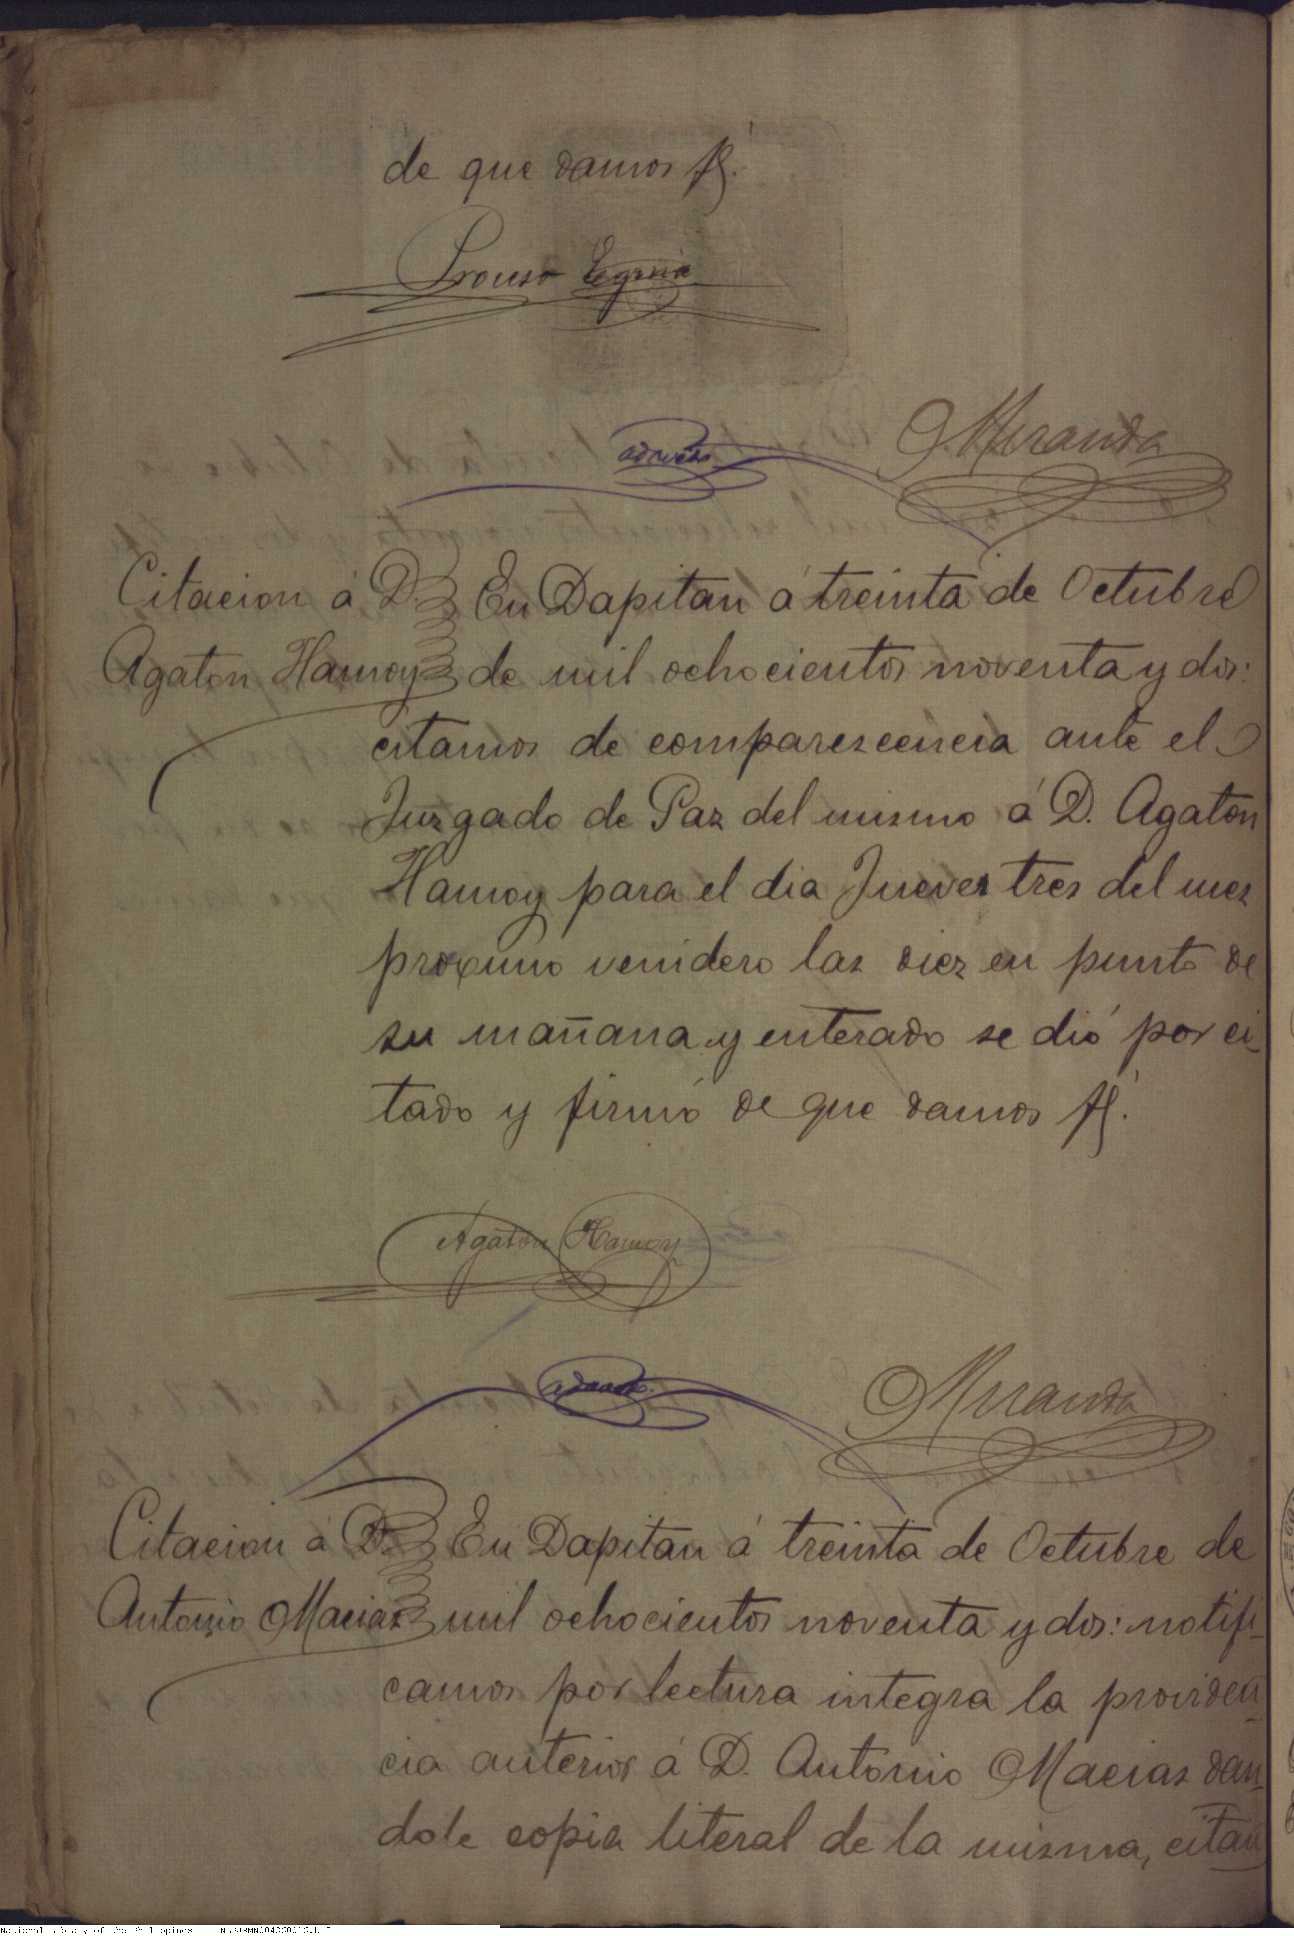 de que damos fé.
G. Miranda
Citacion á D. En Dapitan á treinta de Octubre
Agaton Hamoy de mil ochocientos noventa y dos:
citamos de comparescencia ante el
Juzgado de Paz del mismo á D. Agaton
Hamoy para el dia Jueves tres del mes
proximo venidero las diez en punto de
su mañana y enterado se dió por ci-
tado y firmó de que damos fé.
Agaton Hamoy
Miranda
Citacion á D. En Dapitan á treinta de Octubre de
Antonio Macias mil ochocientos noventa y dos: notifi-
camos por lectura integra la providen-
cia anterior á D. Antonio Macias dan-
dole copia literal de la misma, citan
National Library of the Philippines